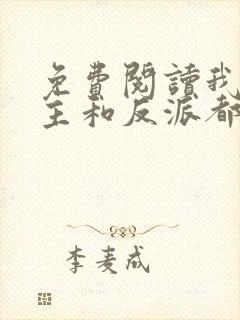 免費閱讀我
主和反派都
李麦成